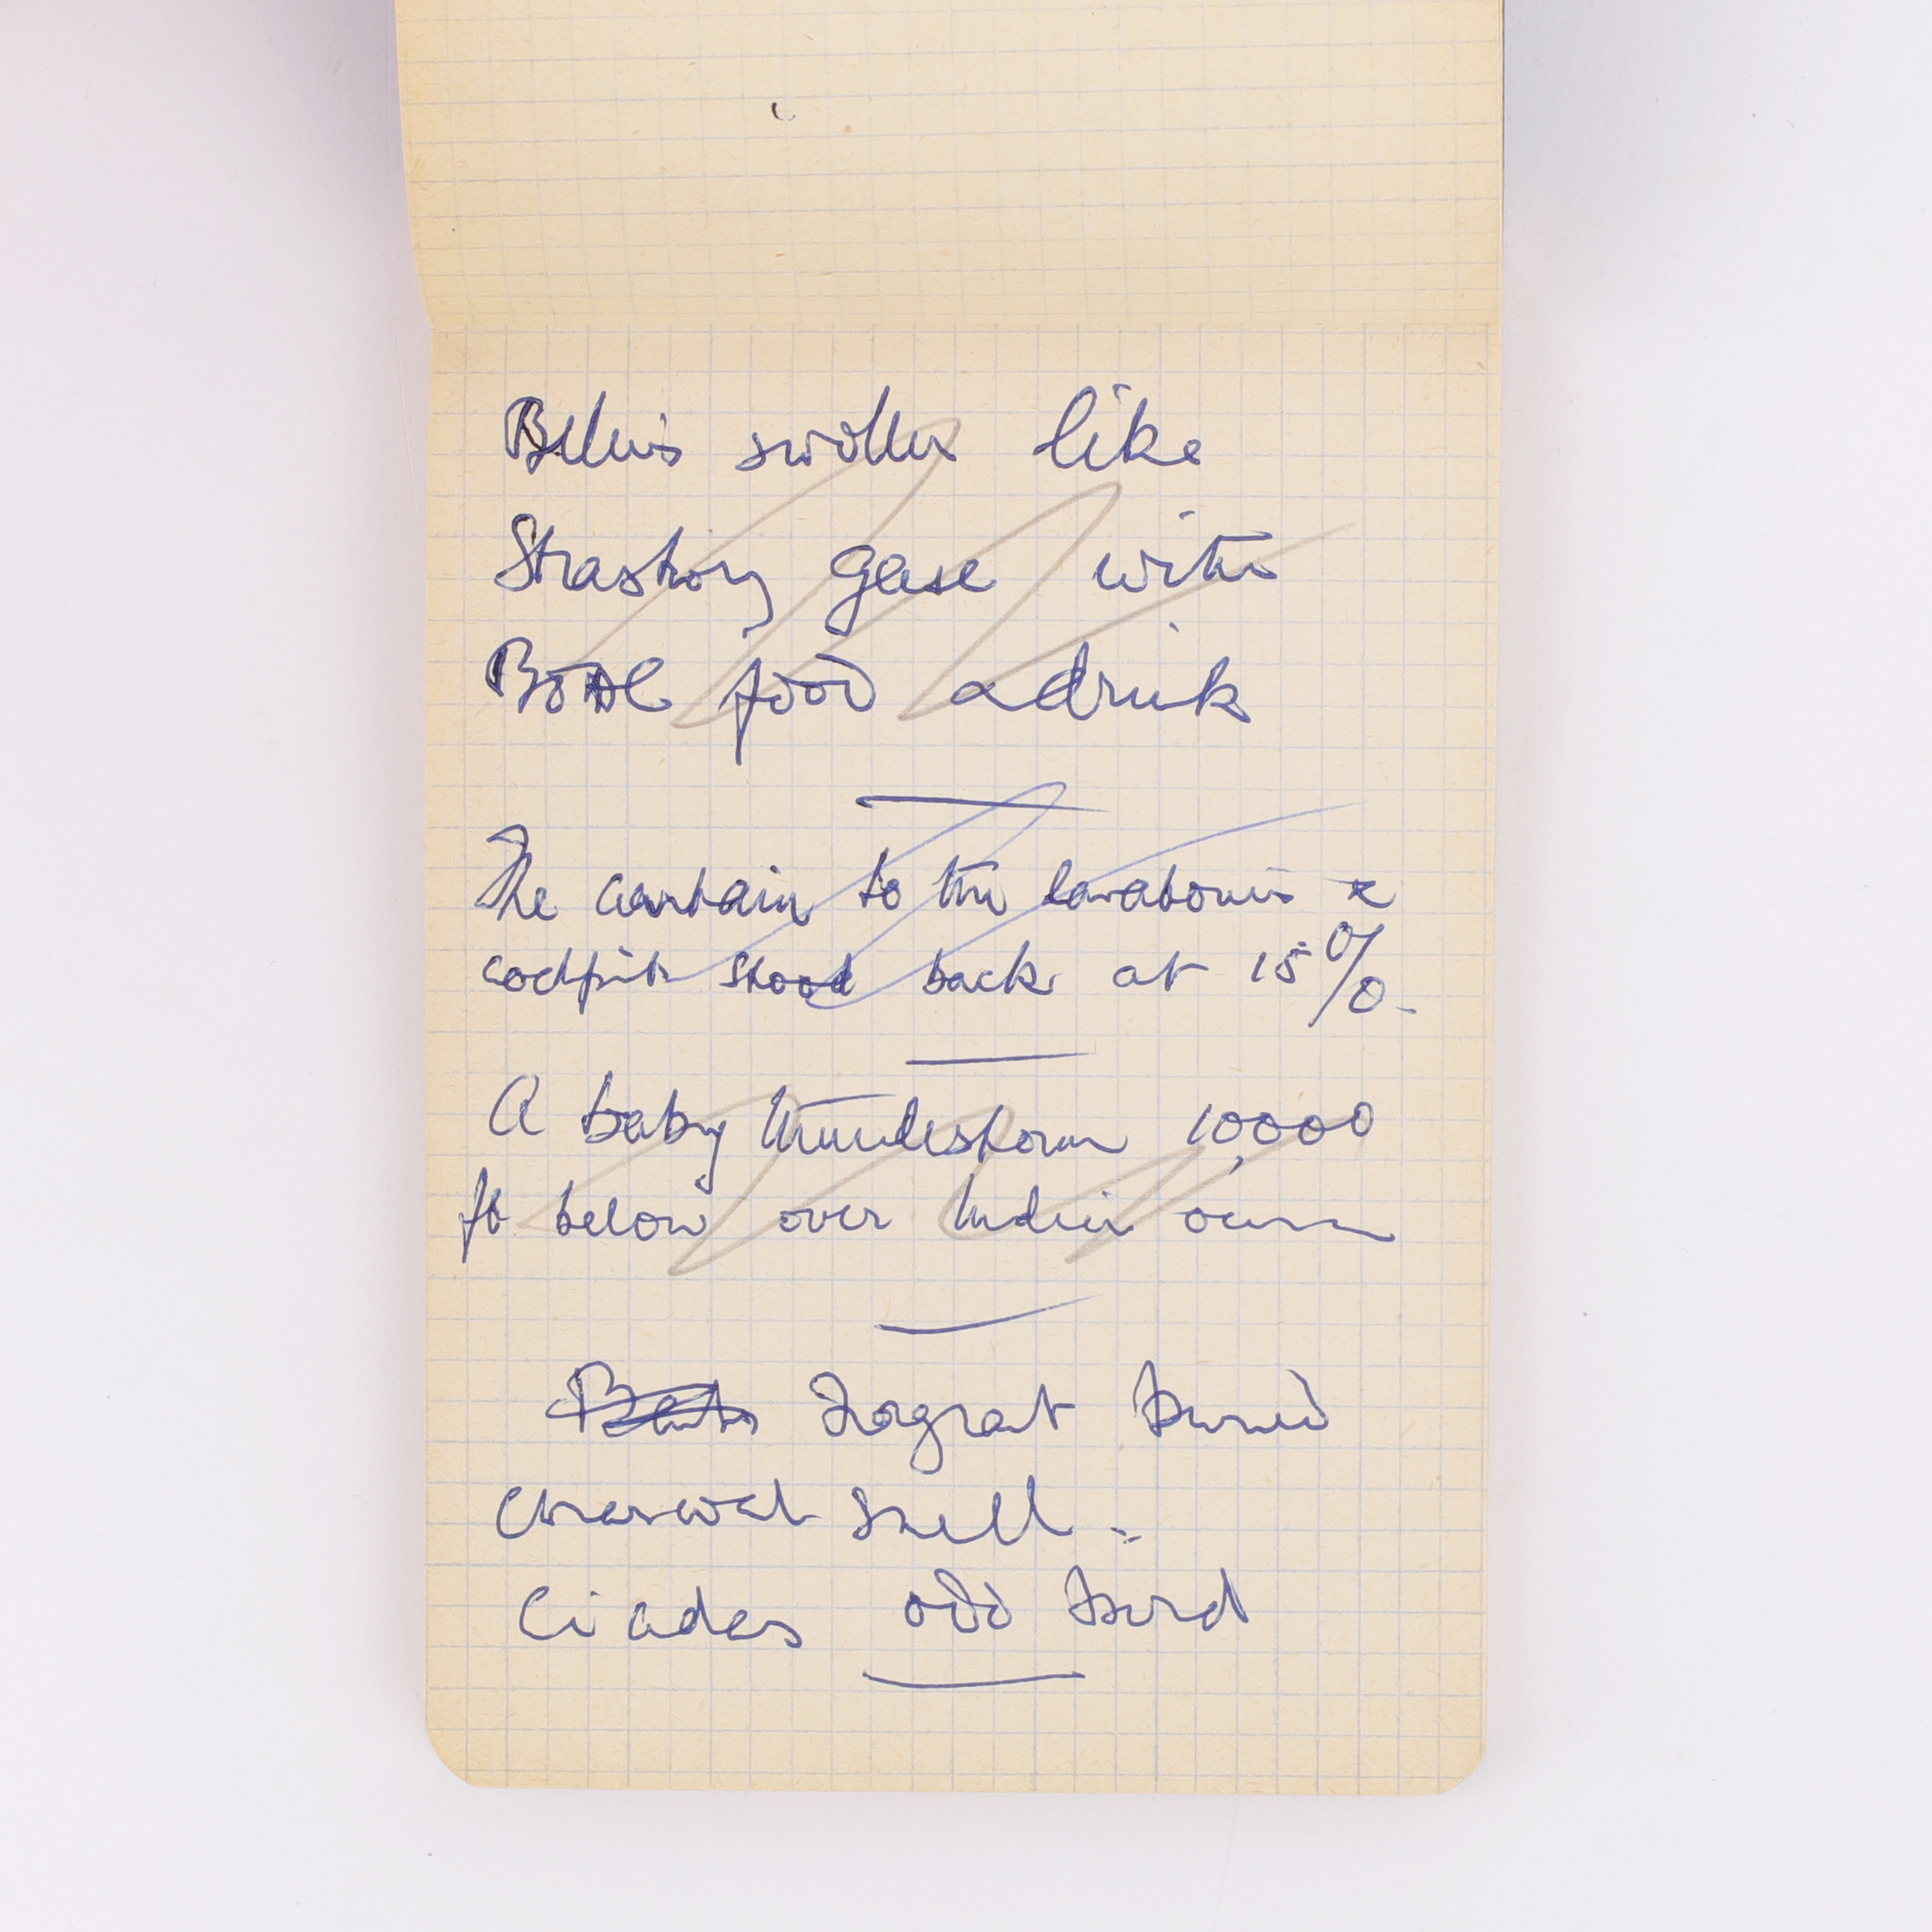 Bellies swollen like
Strasbourg geese with
BOAC food & drink
The curtain to the lavatories &
cockpit stood back at 15%.
A baby thunderstorm 10,000
ft below over Indian ocean
charcoal smell.
Cicadas odd bird